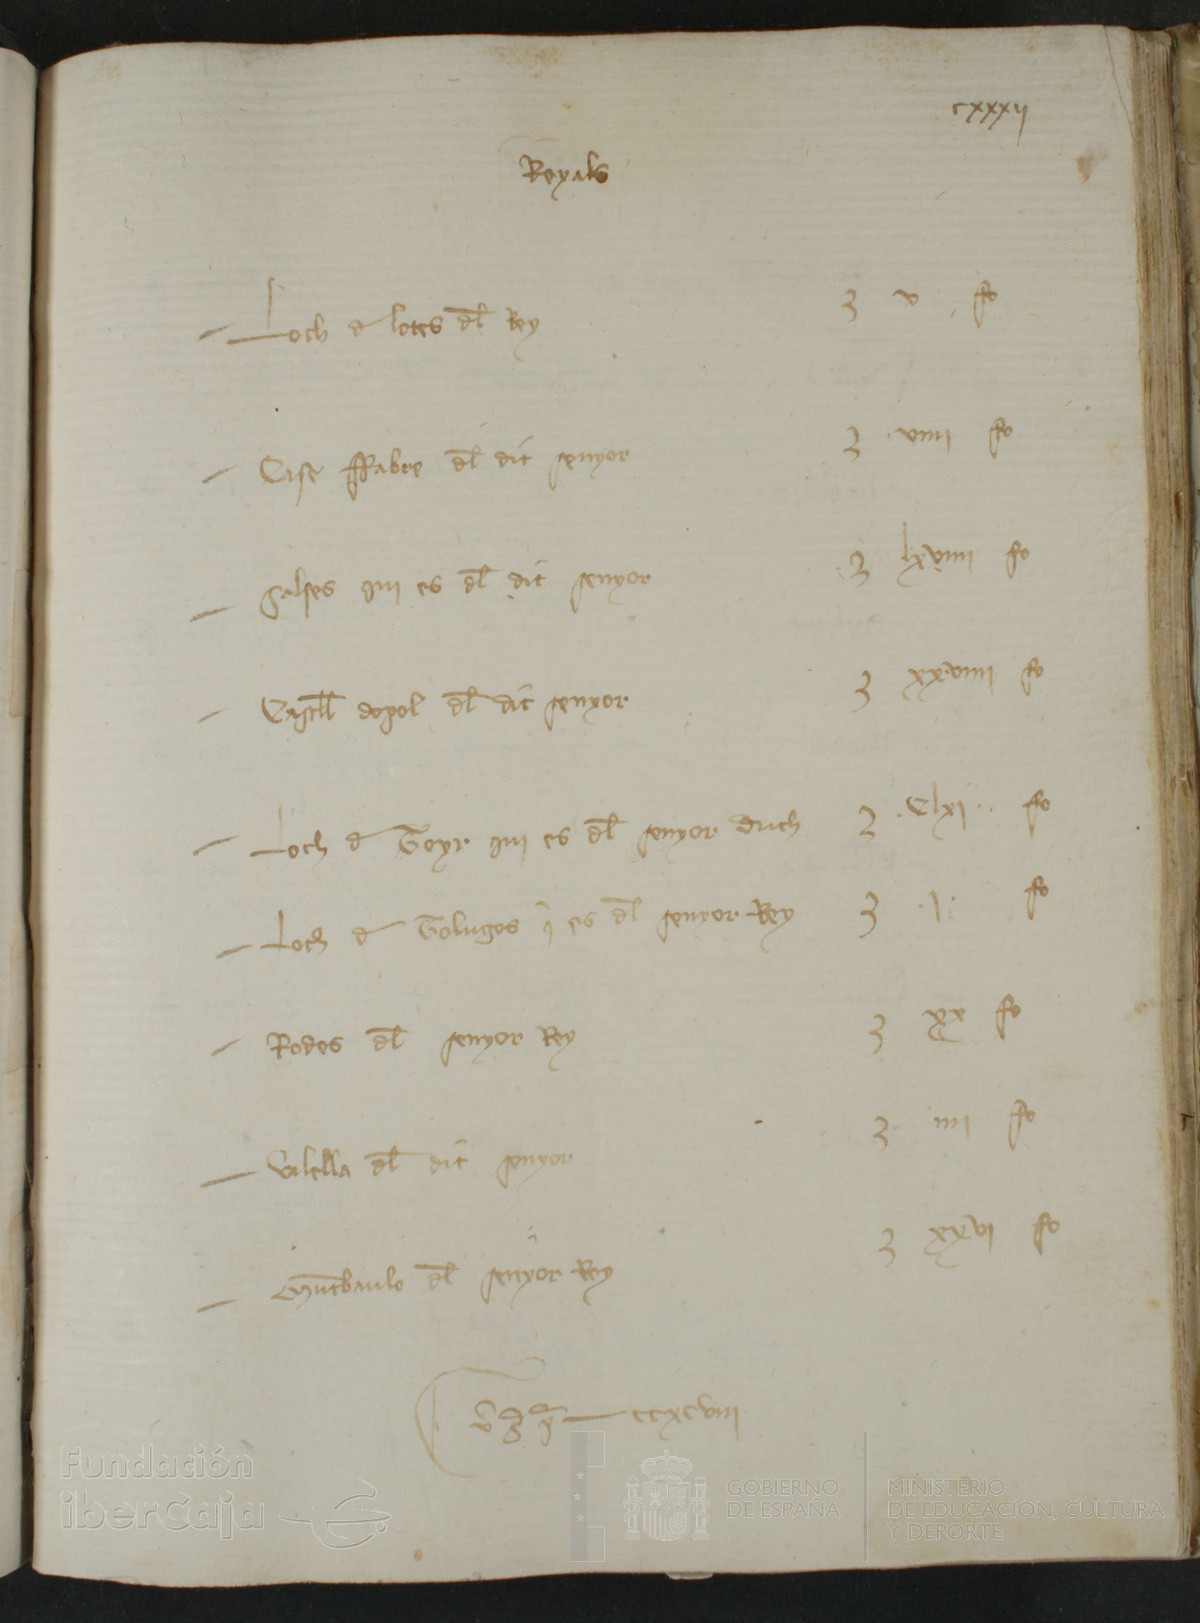 cxxxij
Reyals
Loch d lotes dl Rey 3 v fo
Case ffabre dl dit senyor 3 viiii fo
Salses qui es dl dit senyor 3 lxviiii fo
Castll dopol dl dit senyor 3 xxviiii fo
Loch d Toyr qui es dl senyor duch 3 Clxi fo
Loch d Tolugos q es dl senyor Rey 3 i fo
Rodes dl senyor Rey 3 xx fo
Vilella dl dit senyor 3 iiii fo
Muntbaulo dl senyor Rey 3 xxvi fo
ccxcviii
Fundación
iberCaja
GOBIERNO
DE ESPAÑA
MINISTERIO
DE EDUCACIÓN, CULTURA
Y DEPORTE